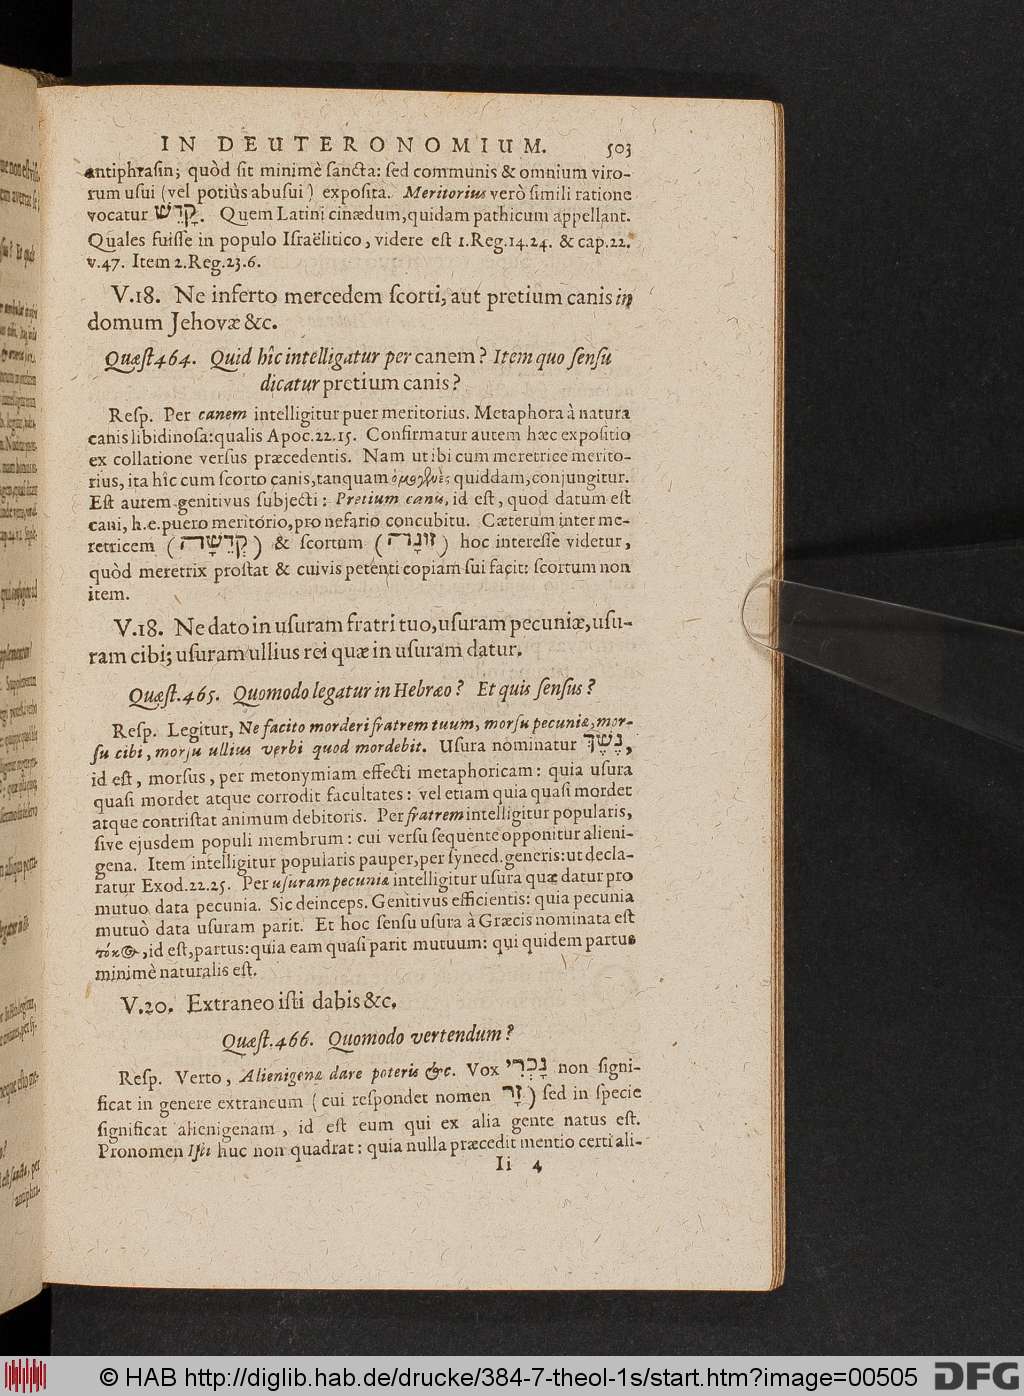 IN DEUTERONOMIUM. 503
antiphrasin; quòd sit minimè sancta: sed communis & omnium viro-
rum usui (vel potiùs abusui) exposita. Meritorius verò simili ratione
vocatur קָדֵשׁ. Quem Latini cinædum, quidam pathicum appellant.
Quales fuisse in populo Israëlitico, videre est 1. Reg. 14. 24. & cap. 22.
v. 47. Item 2. Reg. 23. 6.
V. 18. Ne inferto mercedem scorti, aut pretium canis in
domum Jehovæ &c.
Quæst 464. Quid hîc intelligatur per canem? Item quo sensu
dicatur pretium canis?
Resp. Per canem intelligitur puer meritorius. Metaphora à natura
canis libidinosa: qualis Apoc. 22. 15. Confirmatur autem hæc expositio
ex collatione versus præcedentis. Nam ut ibi cum meretrice merito-
rius, ita hîc cum scorto canis, tanquam ὁμογενές quiddam, conjungitur.
Est autem genitivus subjecti: Pretium canis, id est, quod datum est
cani, h. e. puero meritorio, pro nefario concubitu. Cæterum inter me-
retricem (קְדֵשָׁה) & scortum (זוֹנָה) hoc interesse videtur,
quòd meretrix prostat & cuivis petenti copiam sui facit: scortum non
item.
V. 18. Ne dato in usuram fratri tuo, usuram pecuniæ, usu-
ram cibi; usuram ullius rei quæ in usuram datur.
Quæst. 465. Quomodo legatur in Hebræo? Et quis sensus?
Resp. Legitur, Ne facito morderi fratrem tuum, morsu pecuniæ, mor-
su cibi, morsu ullius verbi quod mordebit. Usura nominatur נֶשֶׁךְ,
id est, morsus, per metonymiam effecti metaphoricam: quia usura
quasi mordet atque corrodit facultates: vel etiam quia quasi mordet
atque contristat animum debitoris. Per fratrem intelligitur popularis,
sive ejusdem populi membrum: cui versu sequente opponitur alieni-
gena. Item intelligitur popularis pauper, per synecd. generis: ut decla-
ratur Exod. 22. 25. Per usuram pecuniæ intelligitur usura quæ datur pro
mutuo data pecunia. Sic deinceps. Genitivus efficientis: quia pecunia
mutuò data usuram parit. Et hoc sensu usura à Græcis nominata est
τόκος, id est, partus: quia eam quasi parit mutuum: qui quidem partus
minimè naturalis est.
V. 20. Extraneo isti dabis &c.
Quæst. 466. Quomodo vertendum?
Resp. Verto, Alienigenæ dare poteris &c. Vox נָכְרִי non signi-
ficat in genere extraneum (cui respondet nomen זָר) sed in specie
significat alienigenam, id est eum qui ex alia gente natus est.
Pronomen Isti huc non quadrat: quia nulla præcedit mentio certi ali-
Ii 4
© HAB http://diglib.hab.de/drucke/384-7-theol-1s/start.htm?image=00505 DFG